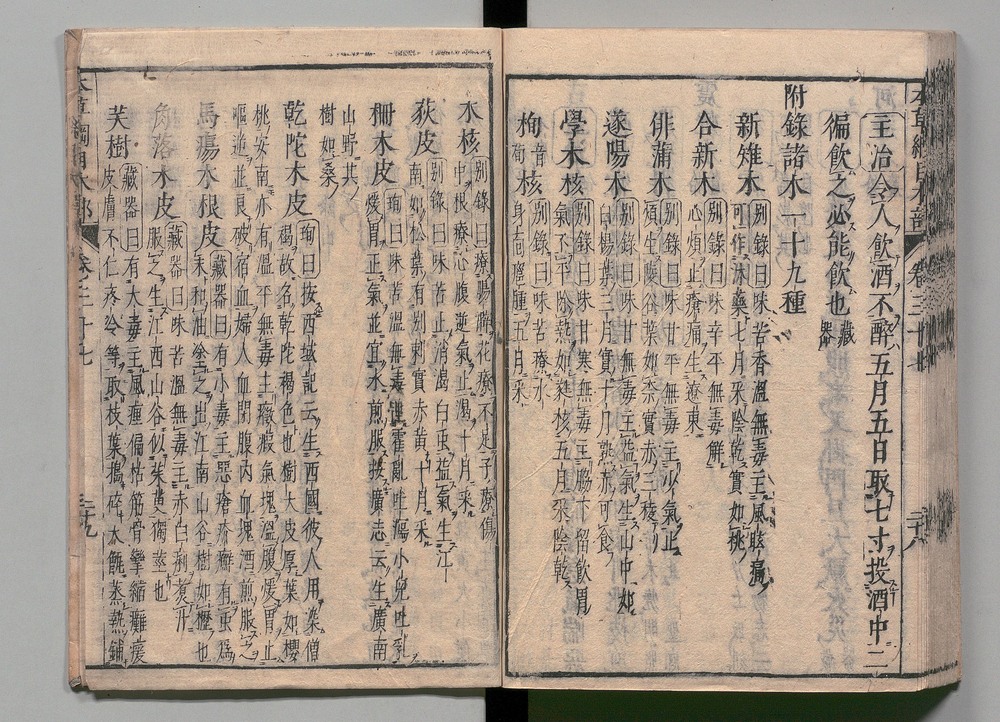 主治令人飲酒不醉五月五日取七寸投酒中二
徧飲之必能飲也藏器
附錄諸木一十九種
新雉木別錄曰味苦香溫無毒主風眩痛
可作沐藥七月采陰乾實如桃
合新木別錄曰味辛平無毒解
心煩止瘡痛生遼東
俳蒲木別錄曰味甘平無毒主少氣止
煩生陵谷葉如柰實赤三稜
遂陽木別錄曰味甘無毒主益氣生山中如
白楊葉三月實十月熟赤可食
學木核別錄曰味甘寒無毒主脇下留飲胃
氣不平除熱如蕤核五月采陰乾
栒音荀核別錄曰味苦療水
身面癰腫五月采
木核別錄曰療腸澼花療不足子療傷
中根療心腹逆氣止渴十月采
荻皮別錄曰味苦止消渴白蟲益氣生江
南如松葉有別刺實赤黃十月采
柵木皮珣曰味苦溫無毒主霍亂吐瀉小兒吐乳
煖胃正氣並宜水煎服按廣志云生廣南
山野其
樹如桑
乾陀木皮珣曰按西域記云生西國彼人用染僧
褐故名乾陀褐色也樹大皮厚葉如櫻
桃安南亦有溫平無毒主癥瘕氣塊溫腹煖胃止
嘔逆並良破宿血婦人血閉腹內血塊酒煎服之
馬瘍木根皮藏器曰有小毒主惡瘡疥癬有蟲爲
末和油塗之出江南山谷樹如櫪也
角落木皮藏器曰味苦溫無毒主赤白痢煮汁
服之生江西山谷似茱萸獨莖也
芙樹藏器曰有大毒主風痺偏枯筋骨攣縮癱瘓
皮膚不仁疼冷等取枝葉搗碎大甑蒸熱鋪